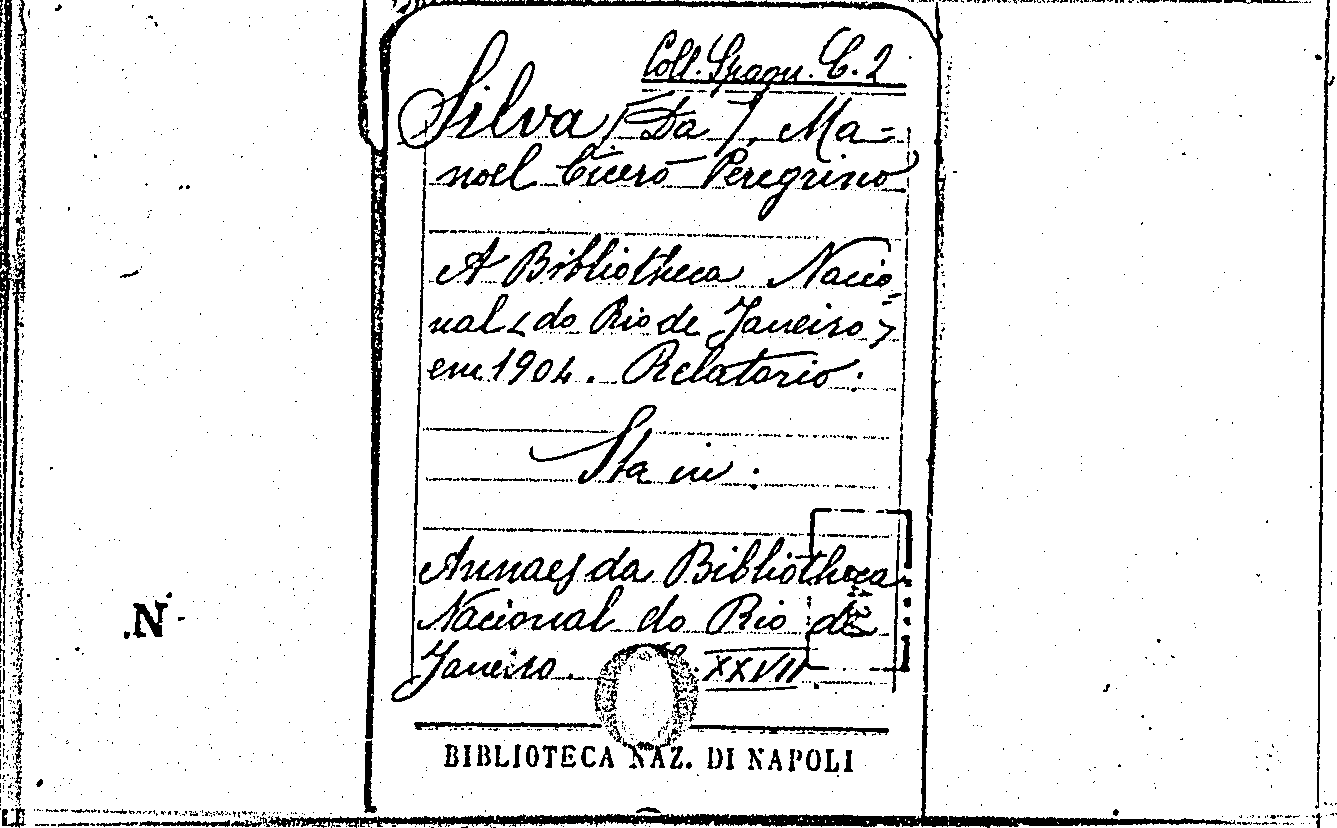 Coll. Spagn. C. 2
Silva (Da), Ma=
noel Cicero Peregrino
A Bibliotheca Nacio=
nal <do Rio de Janeiro>
em 1904. Relatorio.
Sta in:
Annaes da Bibliotheca
Nacional do Rio de
Janeiro. XXVII.
N
BIBLIOTECA NAZ. DI NAPOLI